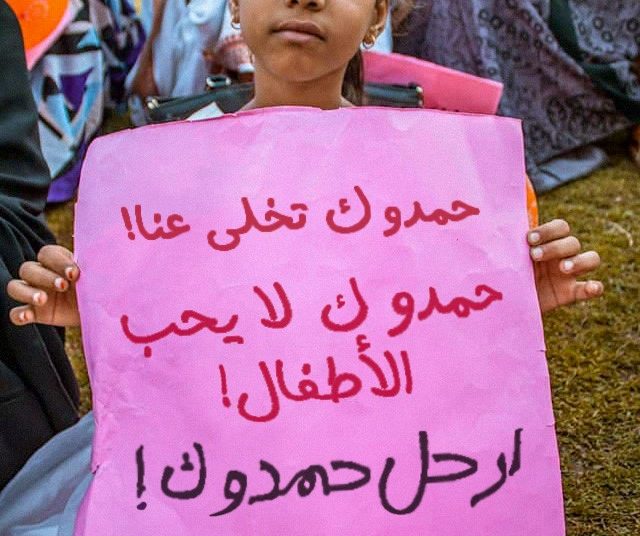 حمدوك تخلى عنا!
حمدوك لا يحب
الأطفال!
ارحل حمدوك!